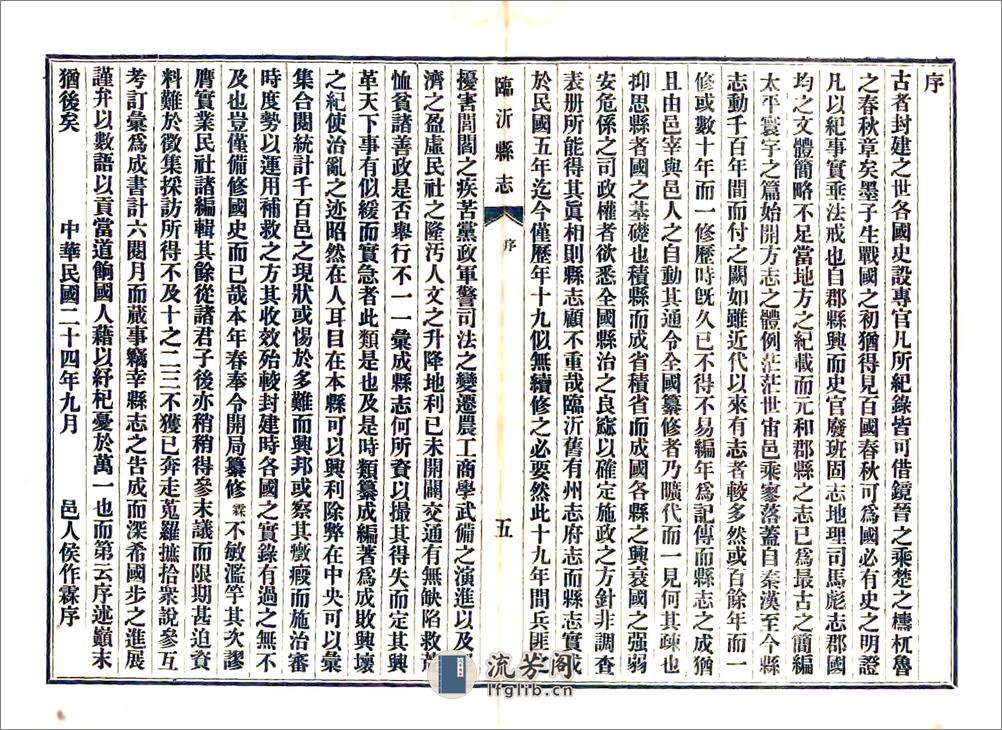 序
古者封建之世各國史設專官凡所紀錄皆可借鏡晉之乘楚之檮杌魯
之春秋章矣墨子生戰國之初猶得見百國春秋可爲國必有史之明證
凡以紀事實垂法戒也自郡縣興而史官廢班固志地理司馬彪志郡國
均之文體簡略不足當地方之紀載而元和郡縣之志已爲最古之簡編
太平寰宇之篇始開方志之體例茫茫世宙邑乘寥落蓋自秦漢至今縣
志動千百年間而付之闕如雖近代以來有志者較多然或百餘年而一
修或數十年而一修歷時旣久已不得不易編年爲記傳而縣志之成猶
且由邑宰與邑人之自動其通令全國纂修者乃曠代而一見何其疎也
抑思縣者國之基礎也積縣而成省積省而成國各縣之興衰國之强弱
安危係之司政權者欲悉全國縣治之良窳以確定施政之方針非調查
表册所能得其眞相則縣志顧不重哉臨沂舊有州志府志而縣志實成
於民國五年迄今僅歷年十九似無續修之必要然此十九年間兵匪之
臨沂縣志
序
五
擾害閭閻之疾苦黨政軍警司法之變遷農工商學武備之演進以及
濟之盈虛民社之隆汚人文之升降地利已未開闢交通有無缺陷救荒
恤貧諸善政是否舉行不一一彙成縣志何所資以撮其得失而定其興
革天下事有似緩而實急者此類是也及是時類纂成編著爲成敗興壞
之紀使治亂之迹昭然在人耳目在本縣可以興利除弊在中央可以彙
集合閱統計千百邑之現狀或惕於多難而興邦或察其癥瘕而施治審
時度勢以運用補救之方其收效殆較封建時各國之實錄有過之無不
及也豈僅備修國史而已哉本年春奉令開局纂修霖不敏濫竽其次謬
膺實業民社諸編輯其餘從諸君子後亦稍稍得參末議而限期甚迫資
料難於徵集採訪所得不及十之二三不獲已奔走蒐羅摭拾衆說參互
考訂彙爲成書計六閱月而蕆事竊幸縣志之告成而深希國步之進展
謹弁以數語以貢當道餉國人藉以紓杞憂於萬一也而第云序述巔末
猶後矣 中華民國二十四年九月 邑人侯作霖序
流芳阁
lfglib.cn